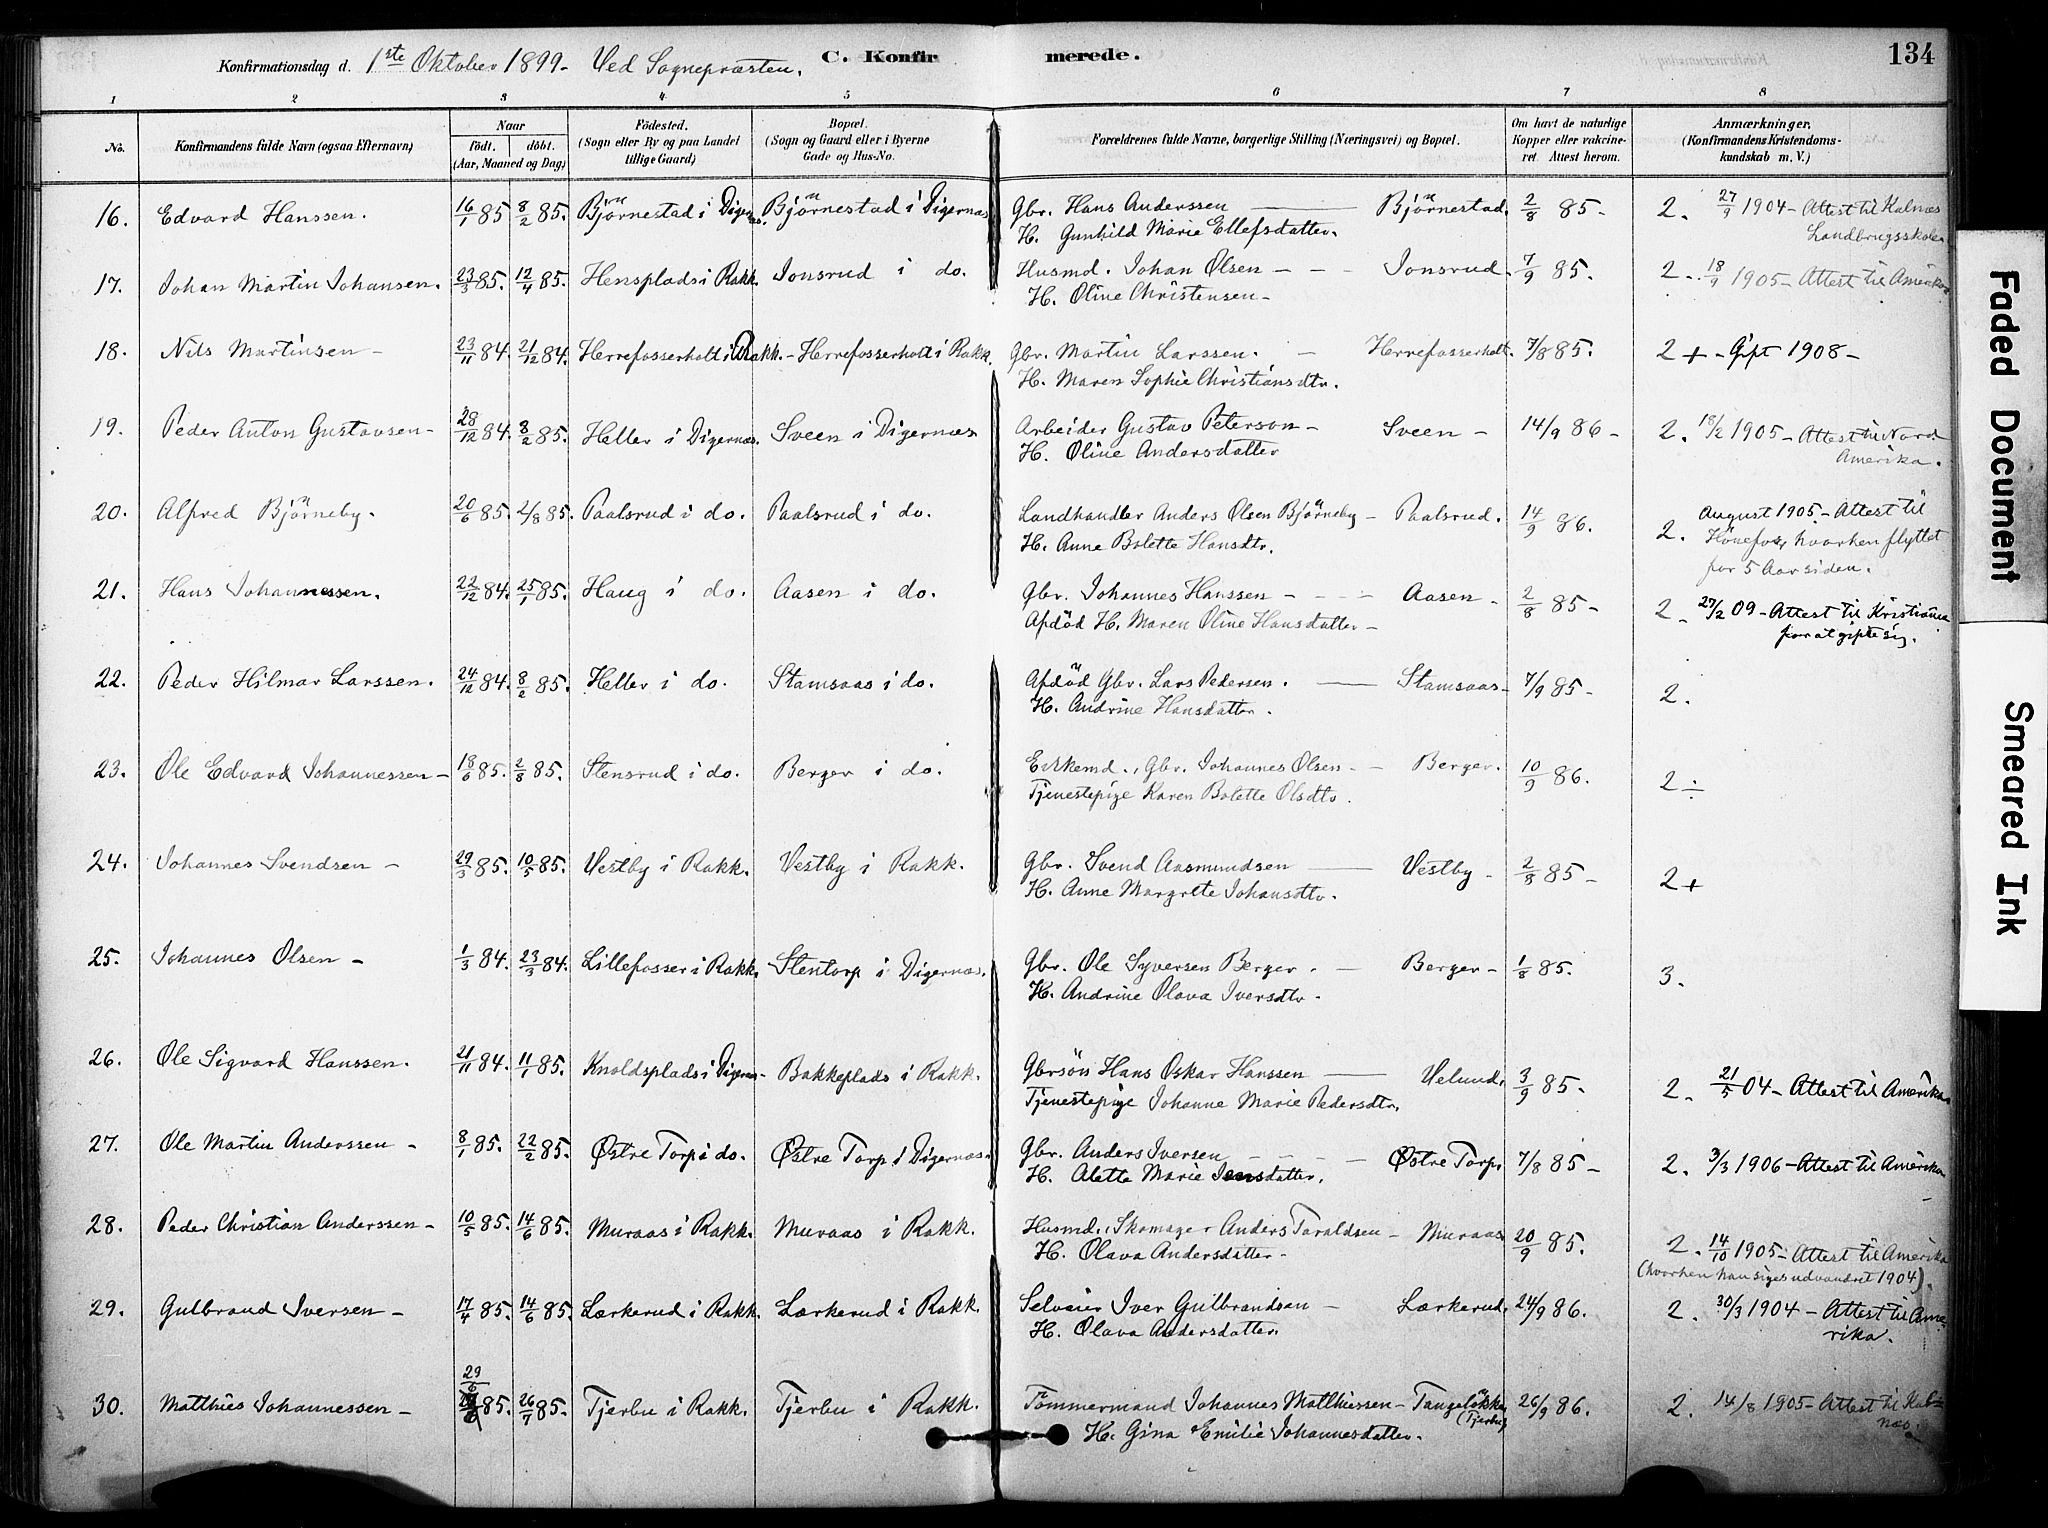 Konfirmationsdag d. 1ste Oktober 1899 - Ved Sognepræsten. C. Konfirmerede. 134
1 2 3 4 5 6 7 8
No. Konfirmandens fulde Navn (ogsaa Efternavn) Naar født. døbt. (Aar, Maaned og Dag) Fødested. (Sogn eller By og paa Landet tillige Gaard) Bopæl. (Sogn og Gaard eller i Byerne Gade og Hus-No. Forældrenes fulde Navne, borgerlige Stilling (Næringsvei) og Bopæl. Om havt de naturlige Kopper eller vakcineret. Attest herom. Anmærkninger. (Konfirmandens Kristendomskundskab m. V.)
16. Edvard Hanssen. 16/1 85 8/2 85. Bjørnestad i Digernæs. Bjørnestad i Digernæs Gbr. Hans Anderssen — Bjørnestad. 2/8 85 - 2. 27/9 1904 - Attest til Kalnæs
H. Gunhild Marie Ellefsdatter. Landbrugsskole.
17. Johan Martin Johansen. 23/3 85. 12/4 85. Hensplads i Rakk. Jonsrud i do. Husmd. Johan Olsen - - Jonsrud. 7/9 85. 2. 18/9 1905 - Attest til Amerika
H. Oline Christensen -
18. Nils Martinsen - 23/11 84. 21/12 84. Herrefosserholt i Rakk. - Herrefosserholt i Rakk. Gbr. Martin Larssen. - Herrefosserholt. 7/8 85. 2+ - Gift 1908 -
H. Maren Sophie Christiansdtr.
19. Peder Anton Gustavsen - 28/12 84. 8/2 85. Heller i Digernæs. Sveen i Digernæs Arbeider Gustav Peterson - Sveen - 14/9 86 - 2. 18/2 1905 - Attest til Nord
H. Oline Andersdatter Amerika.
20. Alfred Bjørneby. 20/6 85. 2/8 85. Paalsrud i do. Paalsrud i do. Landhandler Anders Olsen Bjørneby - Paalsrud. 14/9 86. 2. August 1905 - Attest til
H. Anne Bolette Hansdtr. Hønefos, hvorhen flyttet
for 5 Aar siden.
21. Hans Johannessen. 22/12 84. 25/1 85. Haug i do. Aasen i do. Gbr. Johannes Hanssen - - - Aasen - 2/8 85 - 2. 27/2 09 - Attest til Kristiania
Afdød H. Maren Oline Hansdatter - for at gifte sig.
22. Peder Hilmar Larssen. 24/12 84. 8/2 85. Heller i do. Stamsaas i do. Afdød Gbr. Lars Pedersen. — Stamsaas - 7/9 85 - 2.
H. Andrine Hansdatter.
23. Ole Edvard Johannessen - 18/6 85. 2/8 85. Stensrud i do. Berger i do. Enkemd., Gbr. Johannes Olsen - Berger. 10/9 86. 2 ÷
Tjenestepige Karen Bolette Olsdtr.
24. Johannes Svendsen - 29/3 85. 10/5 85. Vestby i Rakk. Vestby i Rakk. Gbr. Svend Aasmundsen — Vestby - 2/8 85 - 2+
H. Anne Margrete Johansdtr.
25. Johannes Olsen - 1/3 84. 23/3 84. Lillefosser i Rakk. Stentorp i Digernæs. Gbr. Ole Syversen Berger. - Berger - 1/8 85. 3.
H. Andrine Olava Iversdtr.
26. Ole Sigvard Hanssen. 21/11 84. 11/1 85. Knoldsplads i Digernæs - Bakkeplads i Rakk. Gbrsøn Hans Oskar Hanssen — Velund. 3/9 85 - 2. 21/5 04 - Attest til Amerika
Tjenestepige Johanne Marie Pedersdtr.
27. Ole Martin Anderssen - 8/1 85. 22/2 85. Østre Torp i do. Østre Torp i Digernæs. Gbr. Anders Iversen - - - Østre Torp. 7/8 85 - 2. 3/3 1906 - Attest til Amerika
H. Alette Marie Jensdatter.
28. Peder Christian Anderssen - 10/5 85. 14/6 85. Muraas i Rakk. Muraas i Rakk. Husmd. Skomager Anders Taraldsen - Muraas 20/9 85. 2. 14/10 1905 - Attest til Amerika
H. Olava Andersdatter - (hvorhen han siges udvandret 1904).
29. Gulbrand Iversen - 17/4 85. 14/6 85. Lærkerud i Rakk. Lærkerud i Rakk. Selveier Iver Gulbrandsen - Lærkerud. 24/9 86. 2. 30/3 1904 - Attest til Ame-
H. Olava Andersdatter rika.
30. Matthies Johannessen - 29/6 85. 26/7 85. Tjerbu i Rakk. Tjerbu i Rakk. Tømmermand Johannes Matthiessen - Tangeløkka (Tjerbu) 26/9 86. 2. 14/8 1905 - Attest til Kal=
H. Gina Emilie Johannesdatter. næs.
Faded Document
Smeared Ink